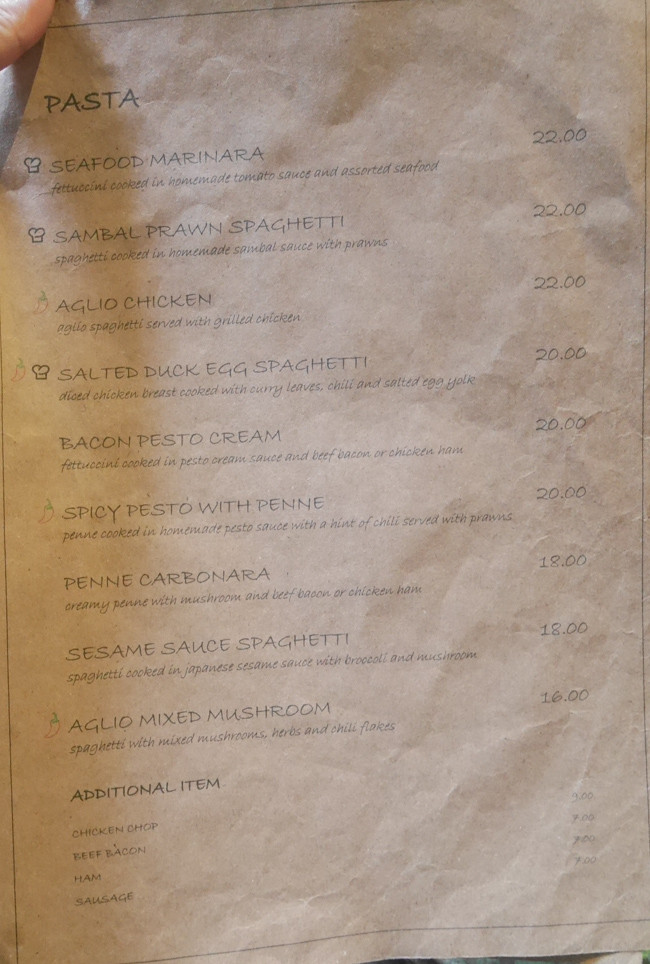 PASTA
SEAFOOD MARINARA 22.00
fettuccini cooked in homemade tomato sauce and assorted seafood
SAMBAL PRAWN SPAGHETTI 22.00
spaghetti cooked in homemade sambal sauce with prawns
AGLIO CHICKEN 22.00
aglio spaghetti served with grilled chicken
SALTED DUCK EGG SPAGHETTI 20.00
diced chicken breast cooked with curry leaves, chili and salted egg yolk
BACON PESTO CREAM 20.00
fettuccini cooked in pesto cream sauce and beef bacon or chicken ham
SPICY PESTO WITH PENNE 20.00
penne cooked in homemade pesto sauce with a hint of chili served with prawns
PENNE CARBONARA 18.00
creamy penne with mushroom and beef bacon or chicken ham
SESAME SAUCE SPAGHETTI 18.00
spaghetti cooked in japanese sesame sauce with broccoli and mushroom
AGLIO MIXED MUSHROOM 16.00
spaghetti with mixed mushrooms, herbs and chili flakes
ADDITIONAL ITEM
CHICKEN CHOP
BEEF BACON 7.00
HAM 7.00
SAUSAGE 7.00